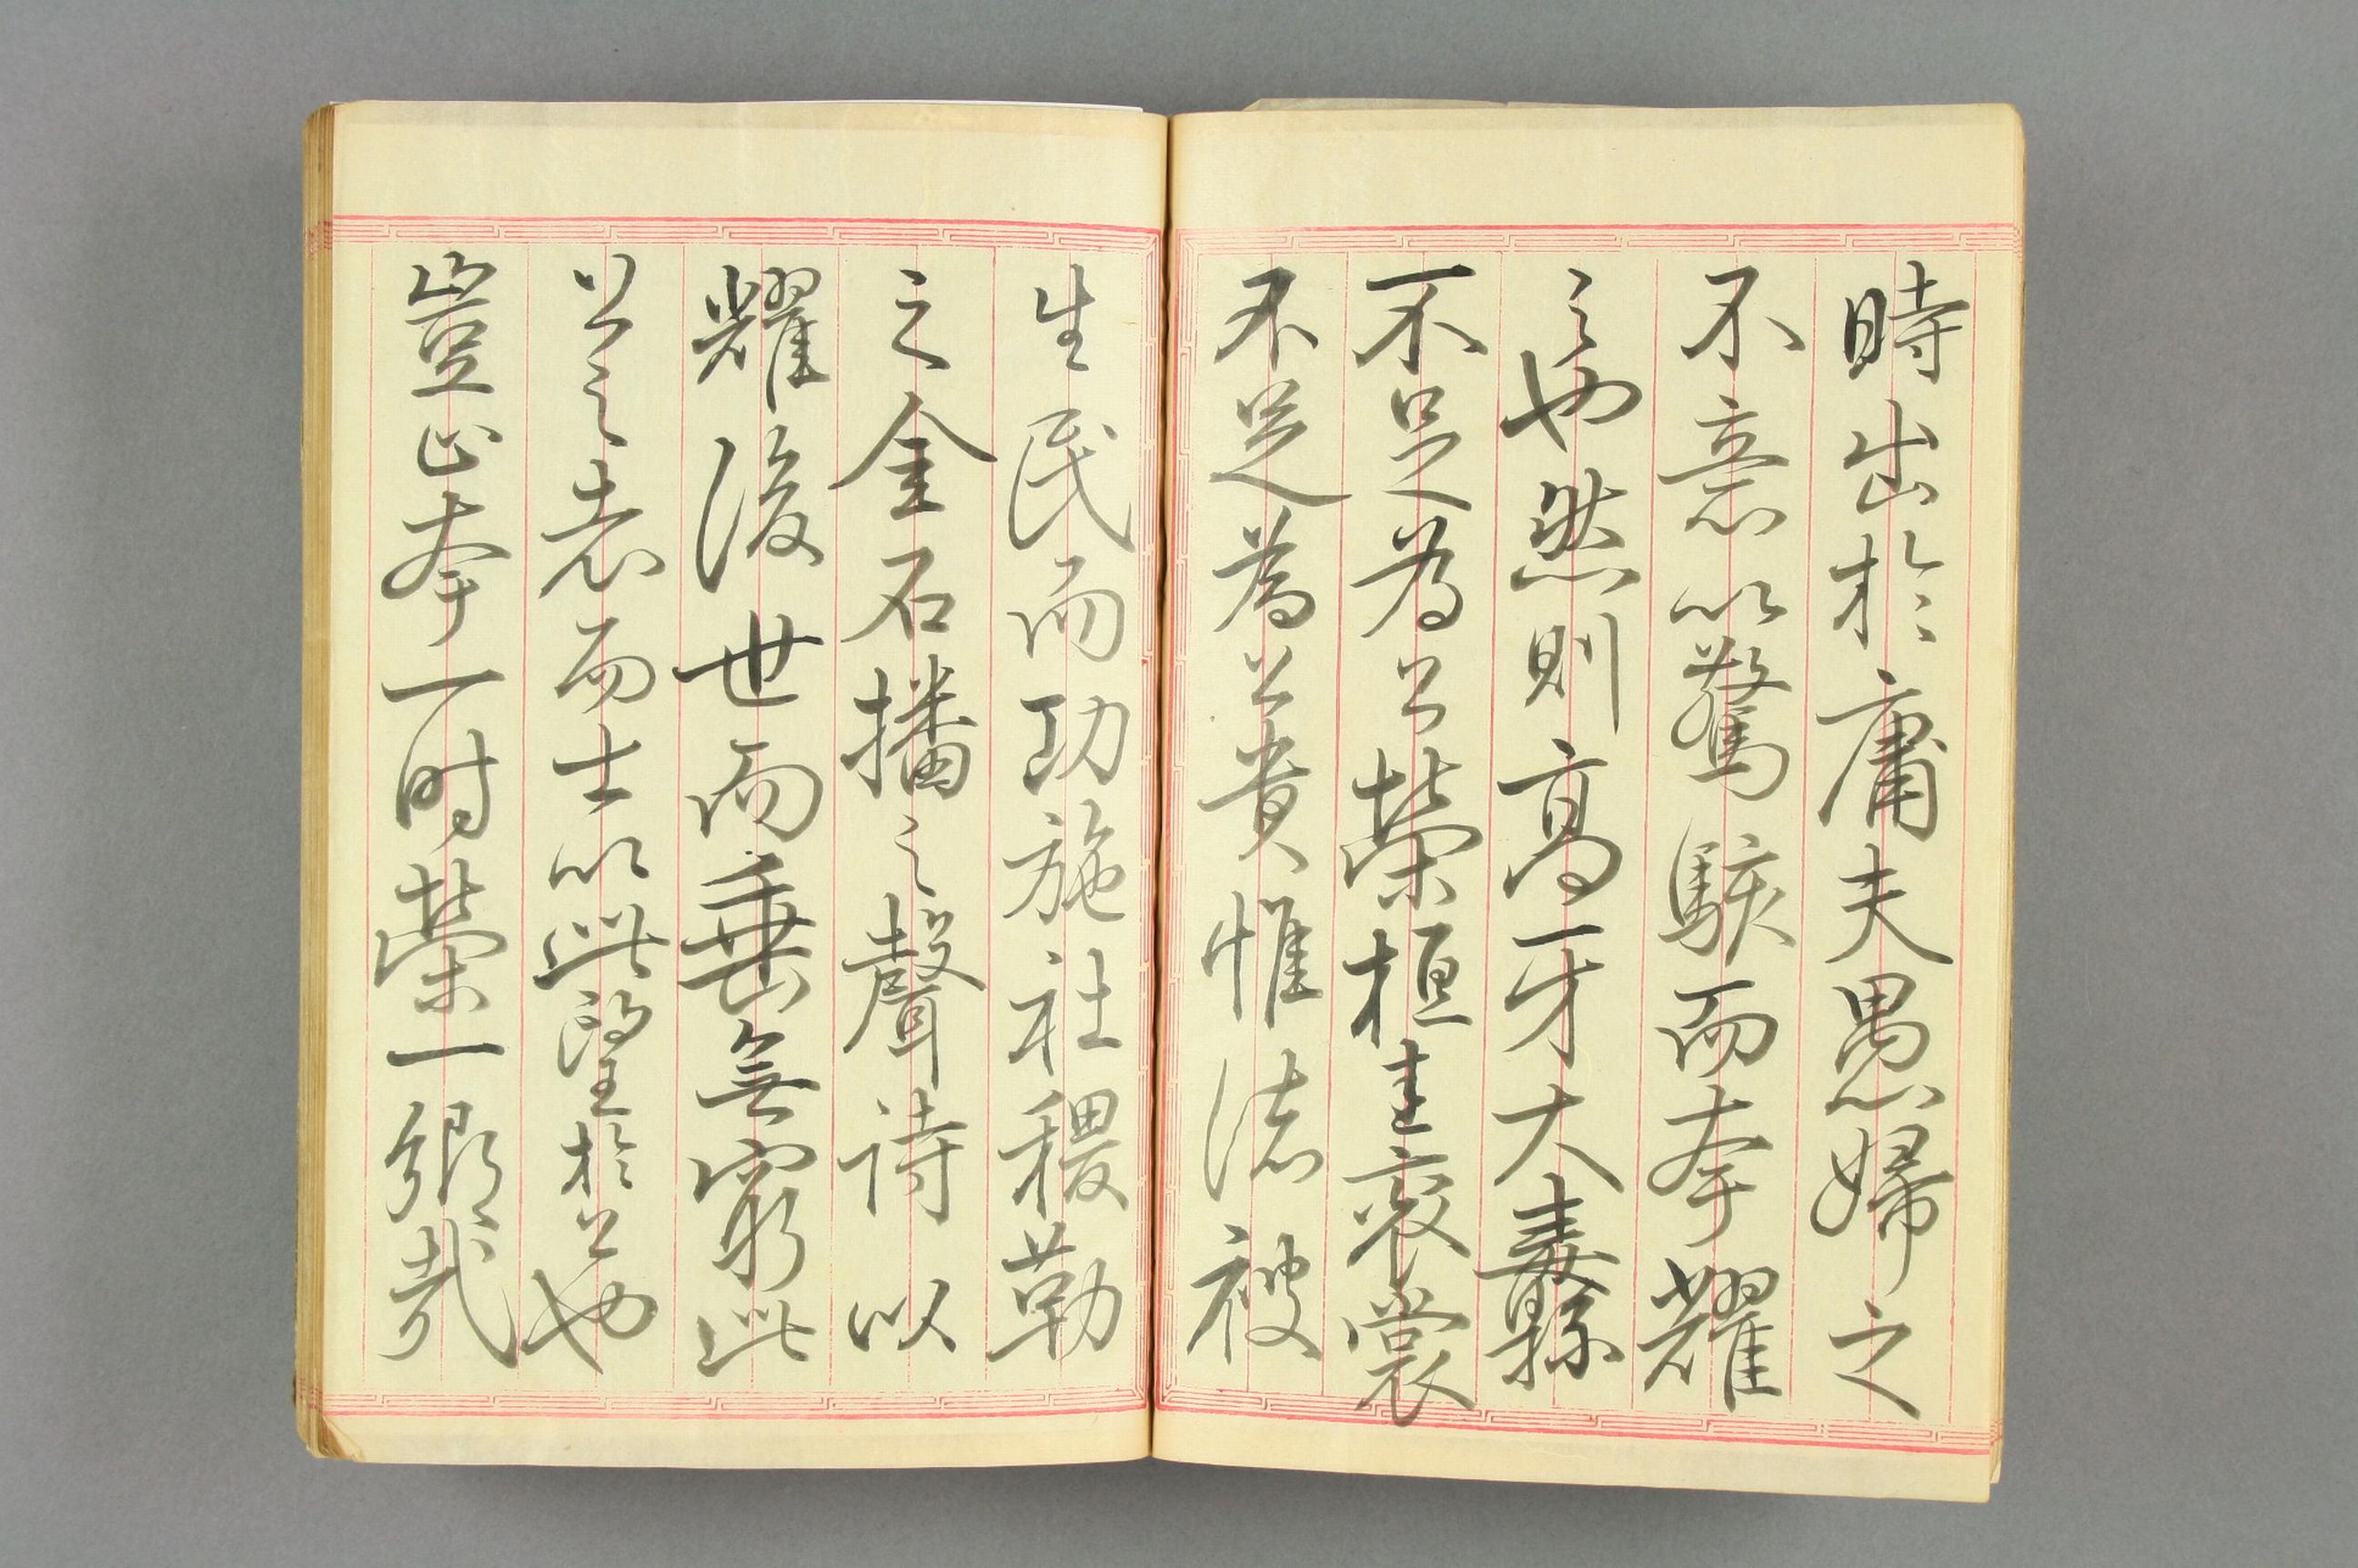 時出於庸夫愚婦之
不意以驚駭而夸耀
之也然則高牙大纛
不足為公榮桓圭袞裳
不足為公貴惟德被
生民而功施社稷勒
之金石播之聲詩以
耀後世而垂無窮此
公之志而士以此望於公也
豈止夸一時榮一鄉哉